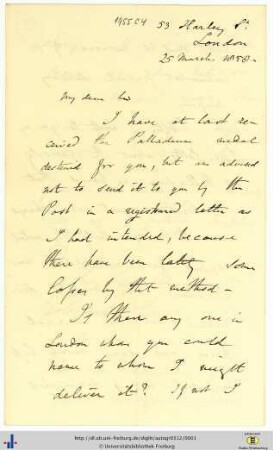 1955 C 4
53 Harley St.
London
25 March 1858 -
My dear Sir
I have at last re-
ceived the Palladium medal
destined for you, but am advised
not to send it to you by the
Post in a registered letter as
I had intended, because
there have been lately some
losses by that method -
Is there any one in
London whom you could
name to whom I might
deliver it? If not I
http://dl.ub.uni-freiburg.de/diglit/autogr0312/0001
© Universitätsbibliothek Freiburg